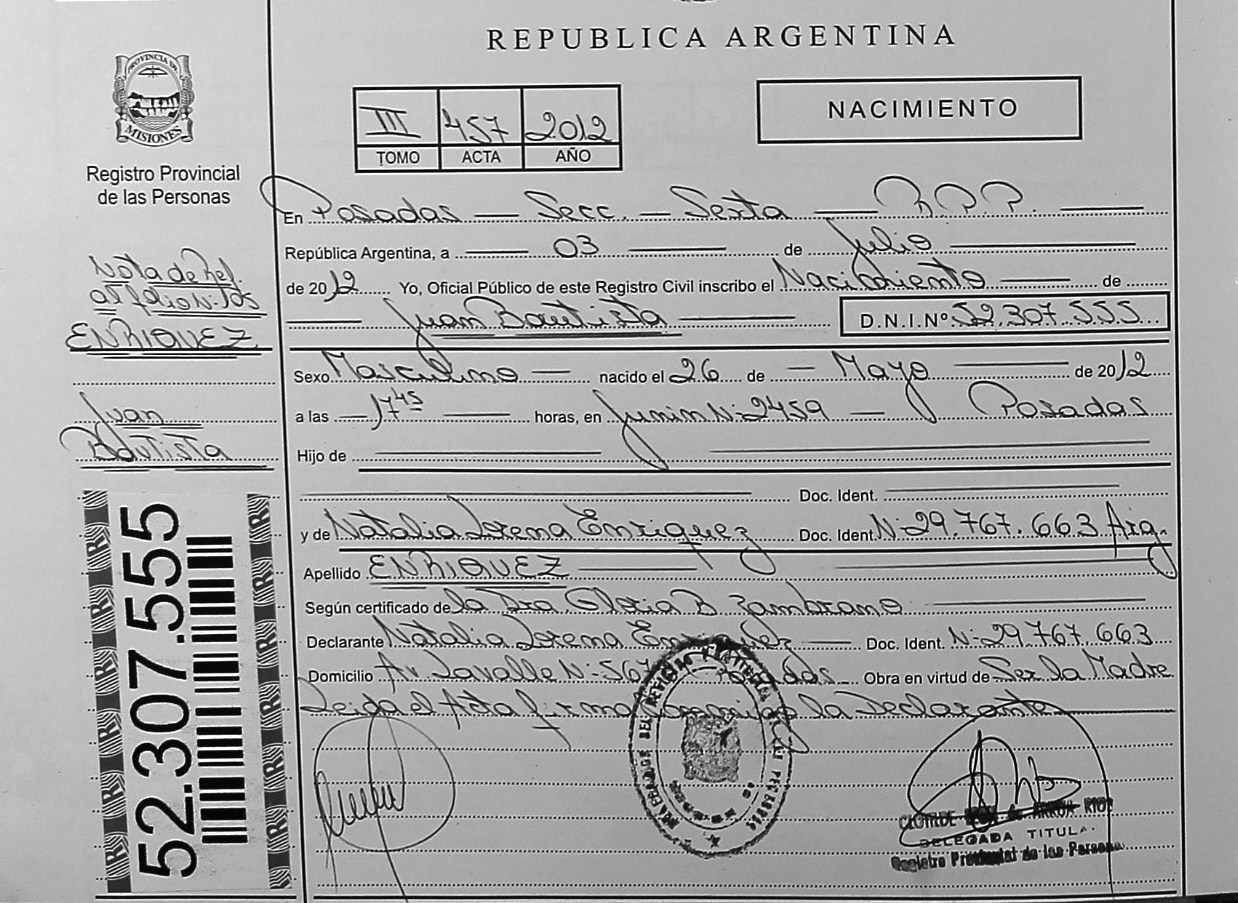 REPUBLICA ARGENTINA
PROVINCIA DE
MISIONES
Registro Provincial
de las Personas
III 457 2012
TOMO ACTA AÑO
NACIMIENTO
En Posadas — Secc. — Sexta — R.P.P.
República Argentina, a 03 de Julio
de 2012 Yo, Oficial Público de este Registro Civil inscribo el Nacimiento de
Juan Bautista D.N.I.Nº 52.307.555
Sexo Masculino nacido el 26 de Mayo de 2012
a las 17 45 horas, en Junin N: 2459 — Posadas
Hijo de
Doc. Ident.
y de Natalia Lorena Enriquez Doc. Ident. N: 29.767.663 Arg.
Apellido ENRIQUEZ
Según certificado de la Dra Gloria B. Zambrano
Declarante Natalia Lorena Enriquez Doc. Ident. N: 29.767.663
Domicilio Av Lavalle N: 567 Posadas Obra en virtud de Ser la Madre
Leida el Acta firma la Declarante
Nota de Ref.
al folio N:
ENRIQUEZ
Juan
Bautista
52.307.555
CLOTILDE
DELEGADA TITULAR
Registro Provincial de las Personas